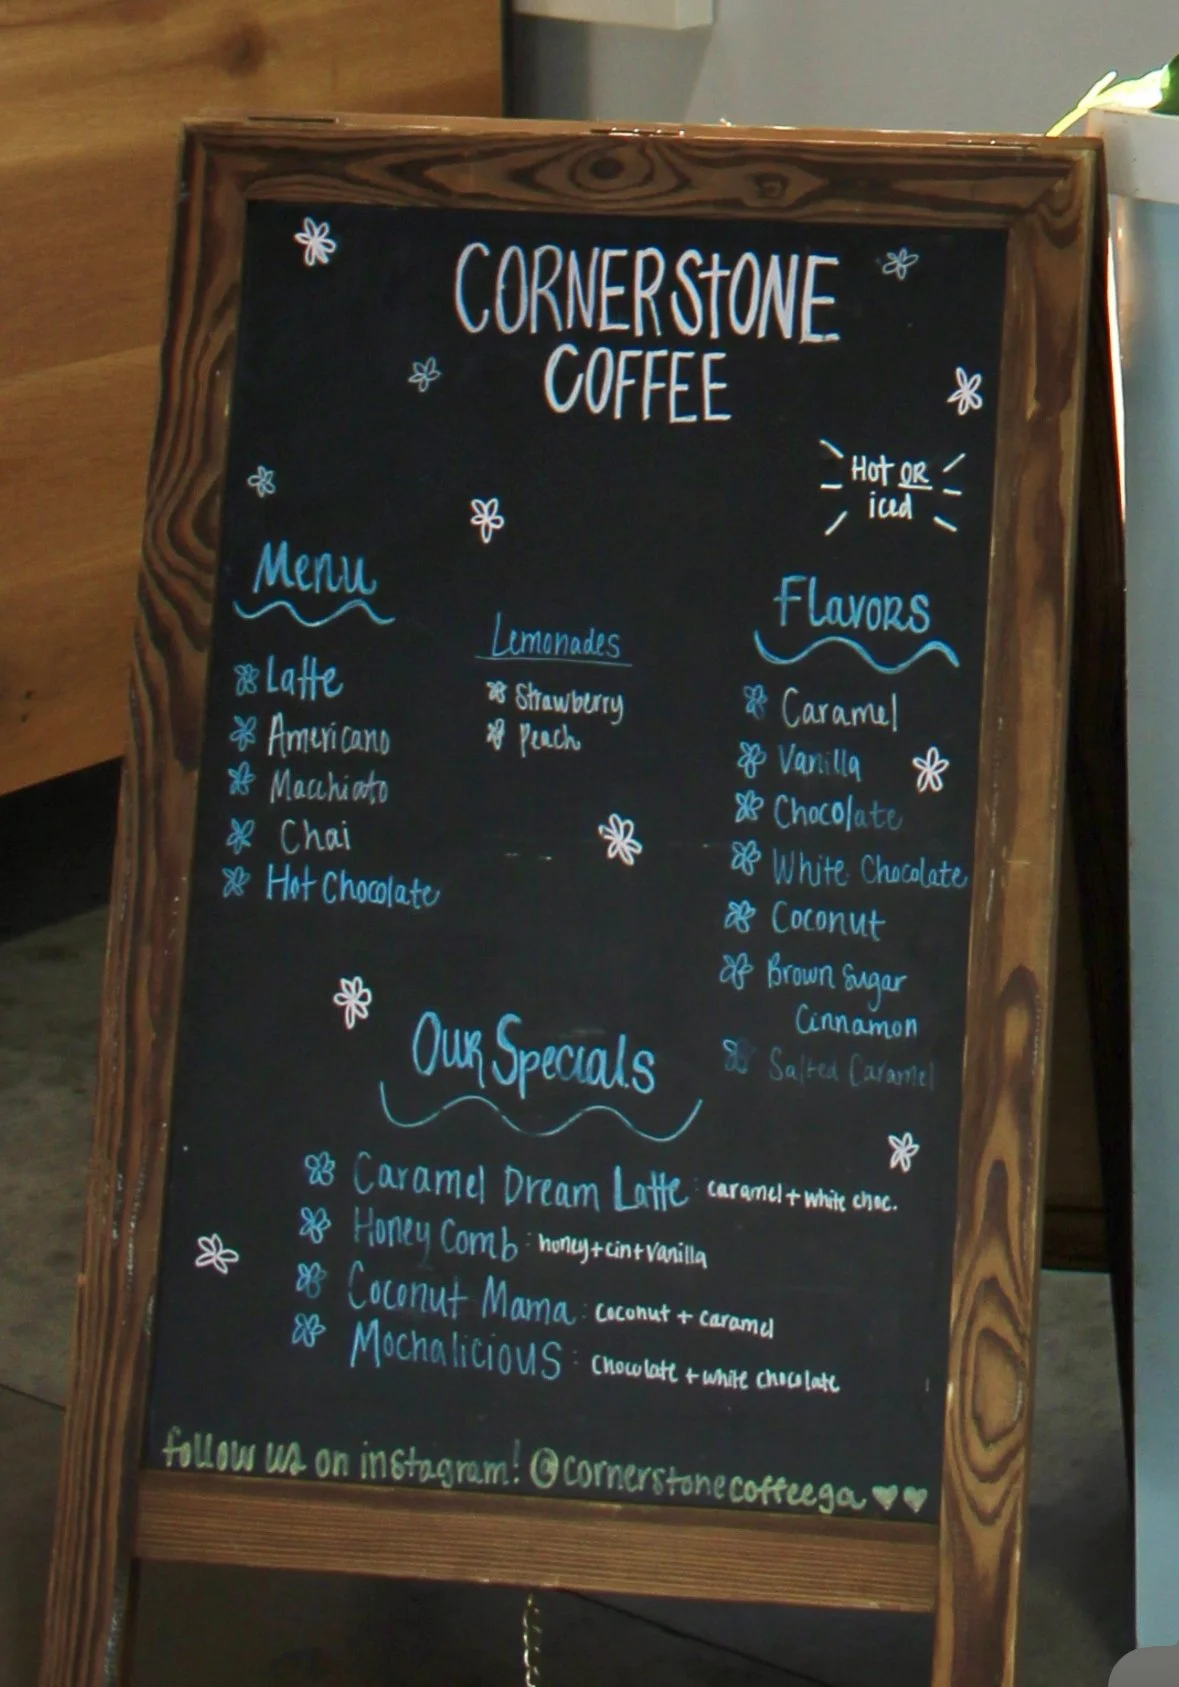 CORNERSTONE
COFFEE
Hot OR
iced
Menu
Latte
Americano
Macchiato
Chai
Hot Chocolate
Lemonades
Strawberry
Peach
Flavors
Caramel
Vanilla
Chocolate
White Chocolate
Coconut
Brown Sugar
Cinnamon
Salted Caramel
Our Specials
Caramel Dream Latte: caramel + white choc.
Honey Comb: honey+cin+vanilla
Coconut Mama: coconut + caramel
Mochalicious: chocolate + white chocolate
follow us on instagram! @cornerstonecoffeega